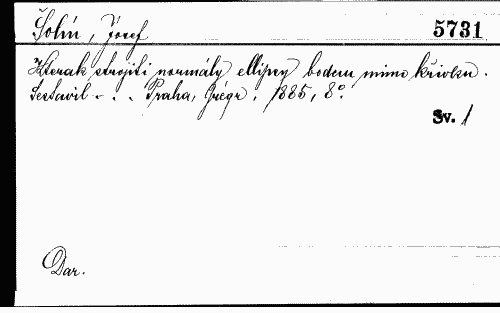 Šolín, Josef
5731
Kterak strojiti normály ellipsy bodem mimo křivku.
Sestavil - . . Praha, Grégr, 1885, 8°.
Sv. 1
Dar.